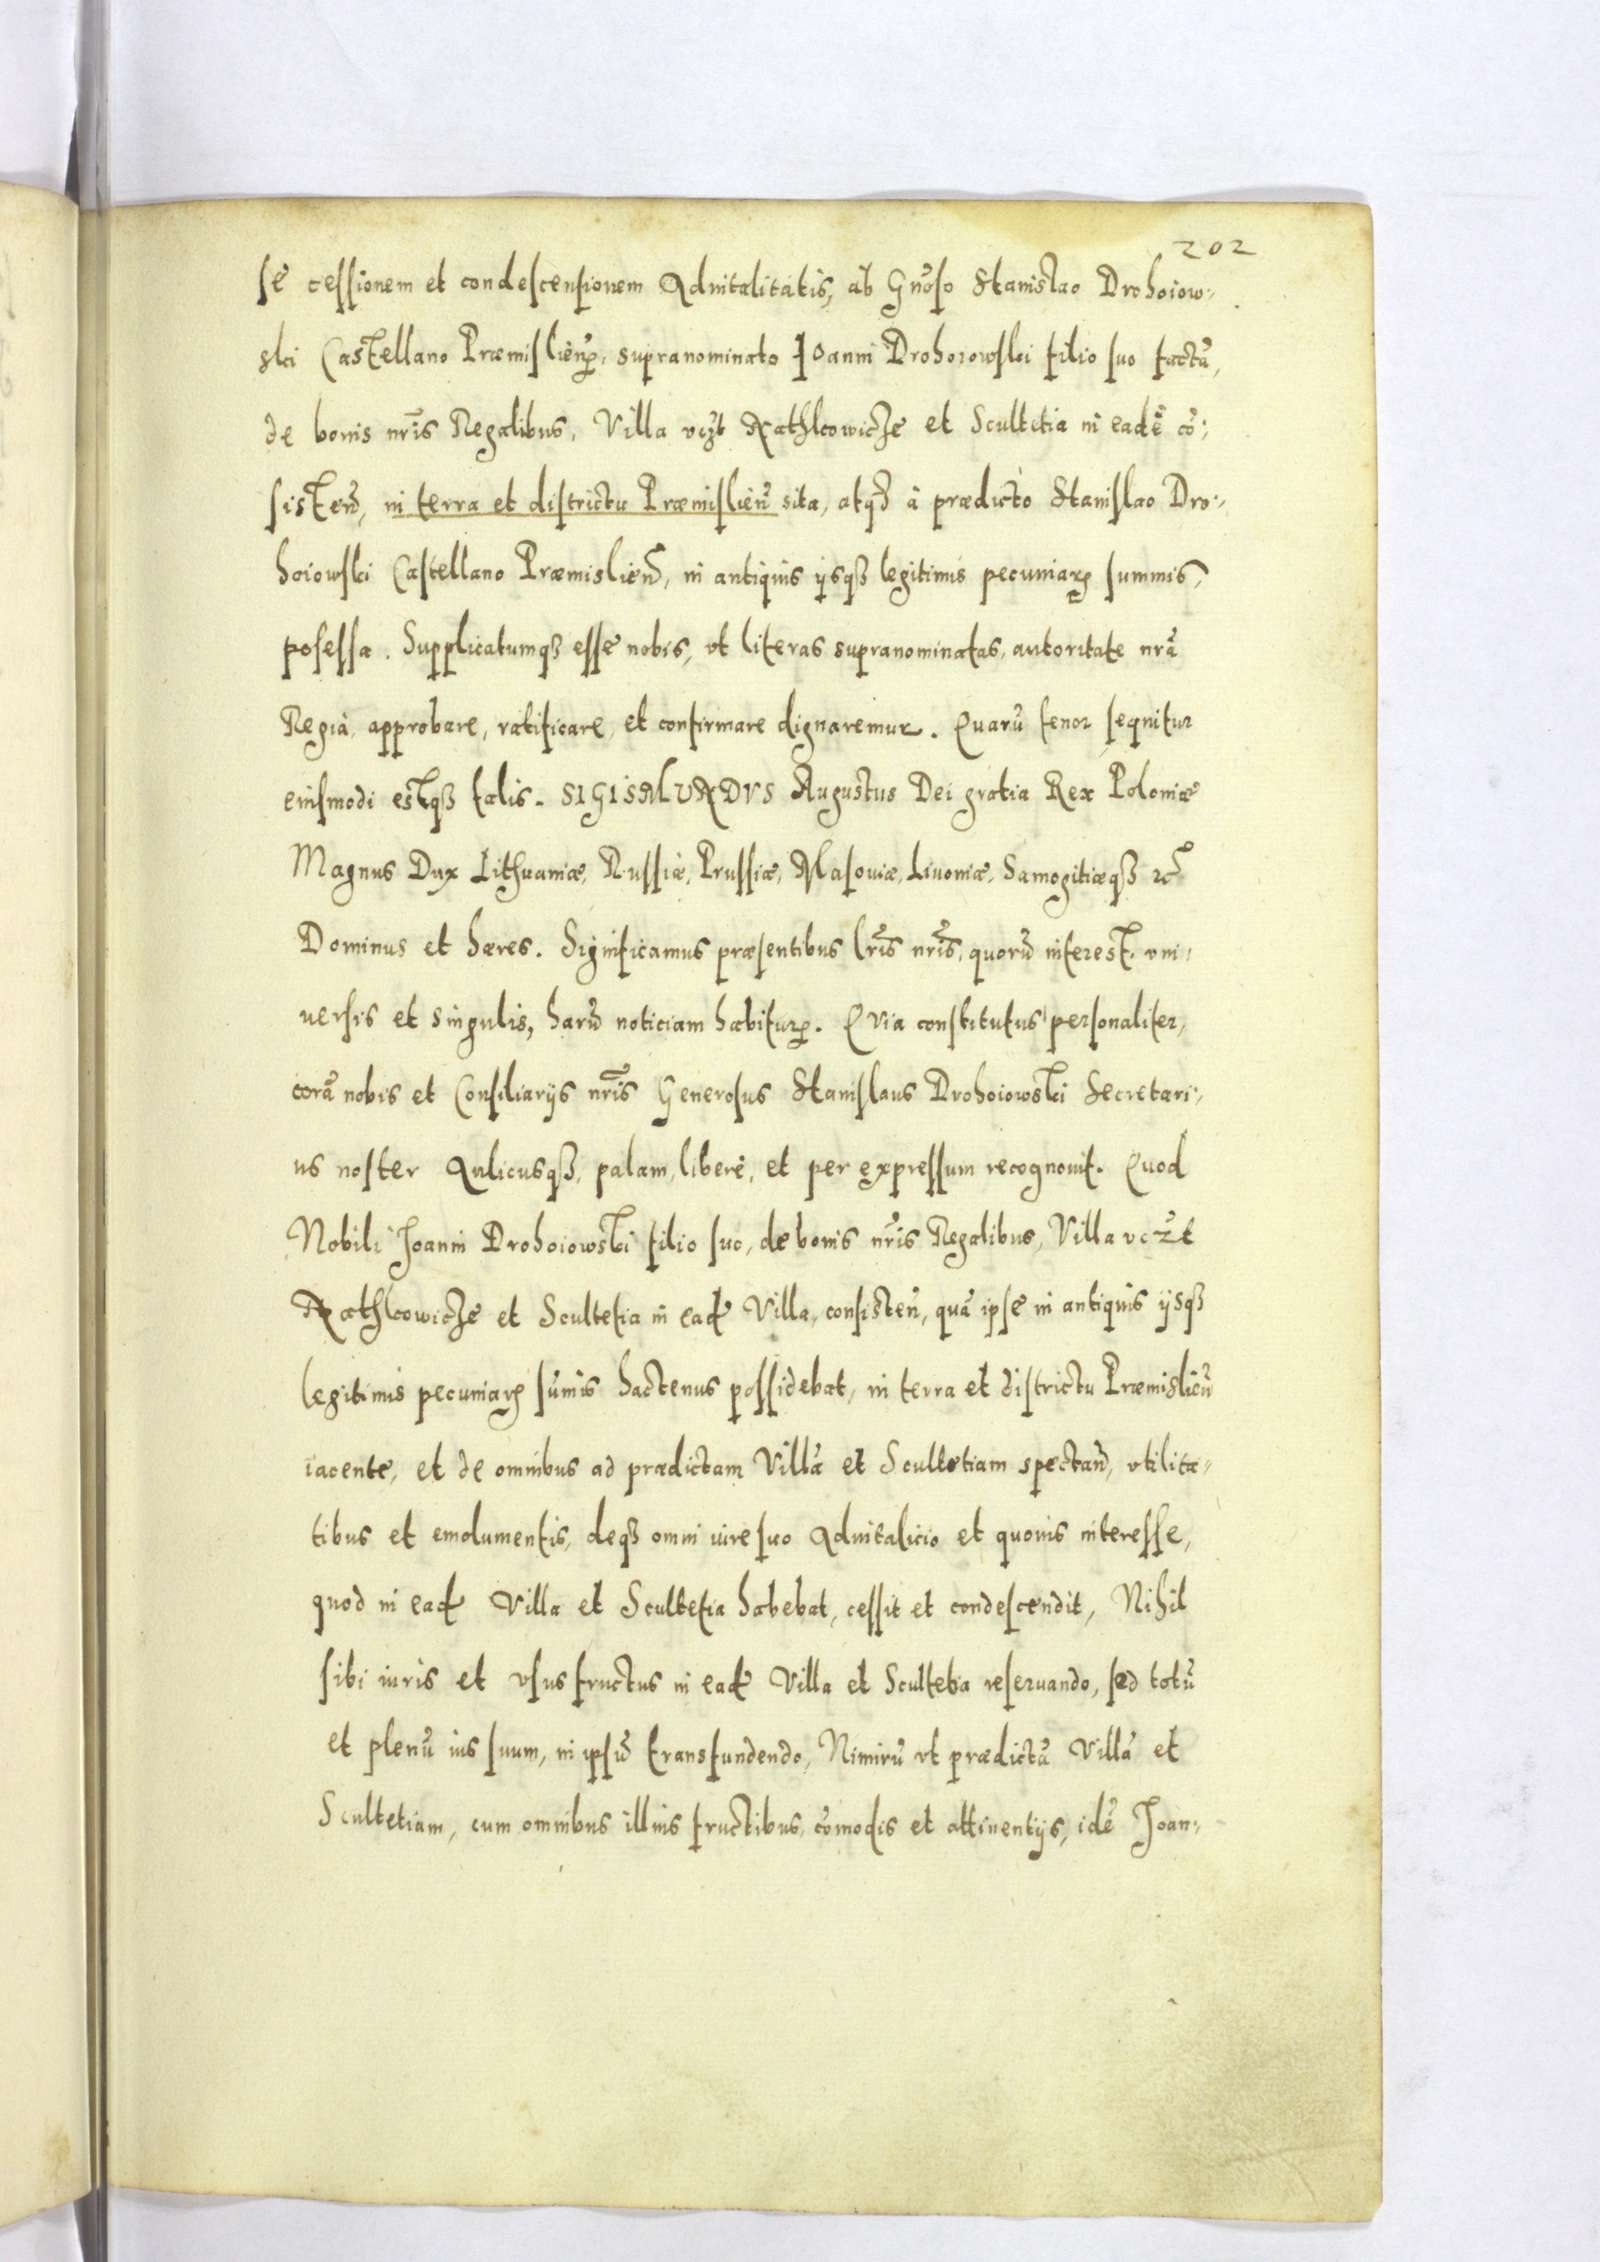 202
se cessionem et condescensionem Aduitalitatis, ab Gnõso Stanislao Drohoiow:
ski Castellano Præmisliẽn, supranominato Ioanni Drohoiowski filio suo factã,
de bonis nrĩs Regalibus, Villa vczt Rathkowicze et Scultetia in eadẽ cõ:
sisteñ, in terra et districtu Præmislieñ sita, atqȝ à prædicto Stanislao Dro:
hoiowski Castellano Præmislieñ, in antiquis ijsqȝ legitimis pecuniarꝝ summis,
posessa. Supplicatumqȝ esse nobis, vt literas supranominatas, autoritate nrã
Regia, approbare, ratificare, et confirmare dignaremur. Quarũ tenor sequitur
eiusmodi estqȝ talis. SIGISMVNDVS Augustus Dei gratia Rex Poloniæ
Magnus Dux Lithuaniæ, Russiæ, Prussiæ, Masouiæ, Liuoniæ, Samogitiæqȝ ꝛc̃
Dominus et hæres. Significamus præsentibus lrĩs nrĩs, quorũ interest, vni:
uersis et singulis, harũ noticiam habiturꝝ. Quia constitutus personaliter,
corã nobis et Consiliarijs nrĩs Generosus Stanislaus Drohoiowski Secretari:
us noster Aulicusqȝ, palam, liberè, et per expressum recognouit. Quod
Nobili Joanni Drohoiowski filio suo, de bonis nrĩs Regalibus, Villa vczt
Rathkowicze et Scultetia in ead Villa, consisteñ, quã ipse in antiquis ijsqȝ
legitimis pecuniarꝝ sũmis hactenus possidebat, in terra et districtu Præmislieñ
iacente, et de omnibus ad prædictam Villã et Scultetiam spectañ, vtilita:
tibus et emolumentis, deqȝ omni iure suo Aduitalicio et quouis interesse,
quod in ead Villa et Scultetia habebat, cessit et condescendit, Nihil
sibi iuris et vsusfructus in ead Villa et Scultetia reseruando, sed totũ
et plenũ ius suum, in ipsũ transfundendo, Nimirũ vt prædictã Villã et
Scultetiam, cum omnibus illius fructibus, cõmodis et attinentijs, idẽ Joan: